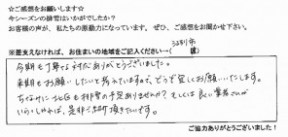 ☆ご感想をお願いします☆
今シーズンの除雪はいかがでしたか？
お客様の声が、私たちの原動力になっています。ぜひ、ご感想をお聞かせ下さい。
※差支えなければ、お住まいの地域をご記入ください…(
今期も丁寧な対応ありがとうございました。
来期もお願いしたいと考えていますので、どうぞ宜しくお願いいたします。
も排雪の予定ありませんか？もしくは良い業者さんが
いらっしゃれば、是非 頂きたいです。
ご協力ありがとうございました！